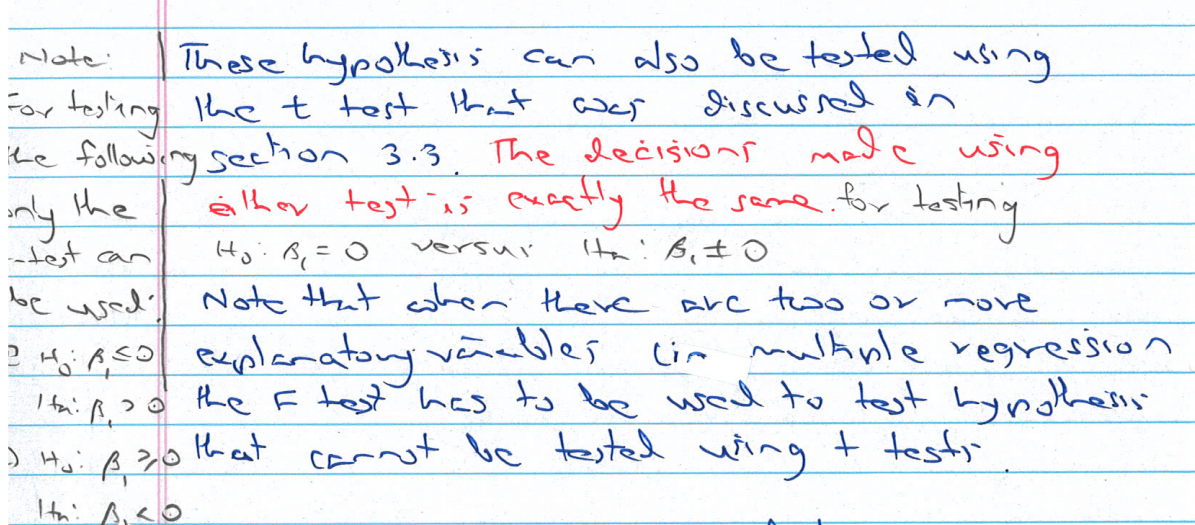 Note:
For testing
the following
only the
t-test can
be used:
H₀: β₁ ≤ 0
Hₐ: β₁ > 0
) H₀: β₁ ≥ 0
Hₐ: β₁ < 0
These hypothesis can also be tested using
the t test that was discussed in
section 3.3. The decisions made using
either test is exactly the same. for testing
H₀: β₁ = 0 versus Hₐ: β₁ ≠ 0
Note that when there are two or more
explanatory variables (in multiple regression
the F test has to be used to test hypothesis
that cannot be tested using t tests.